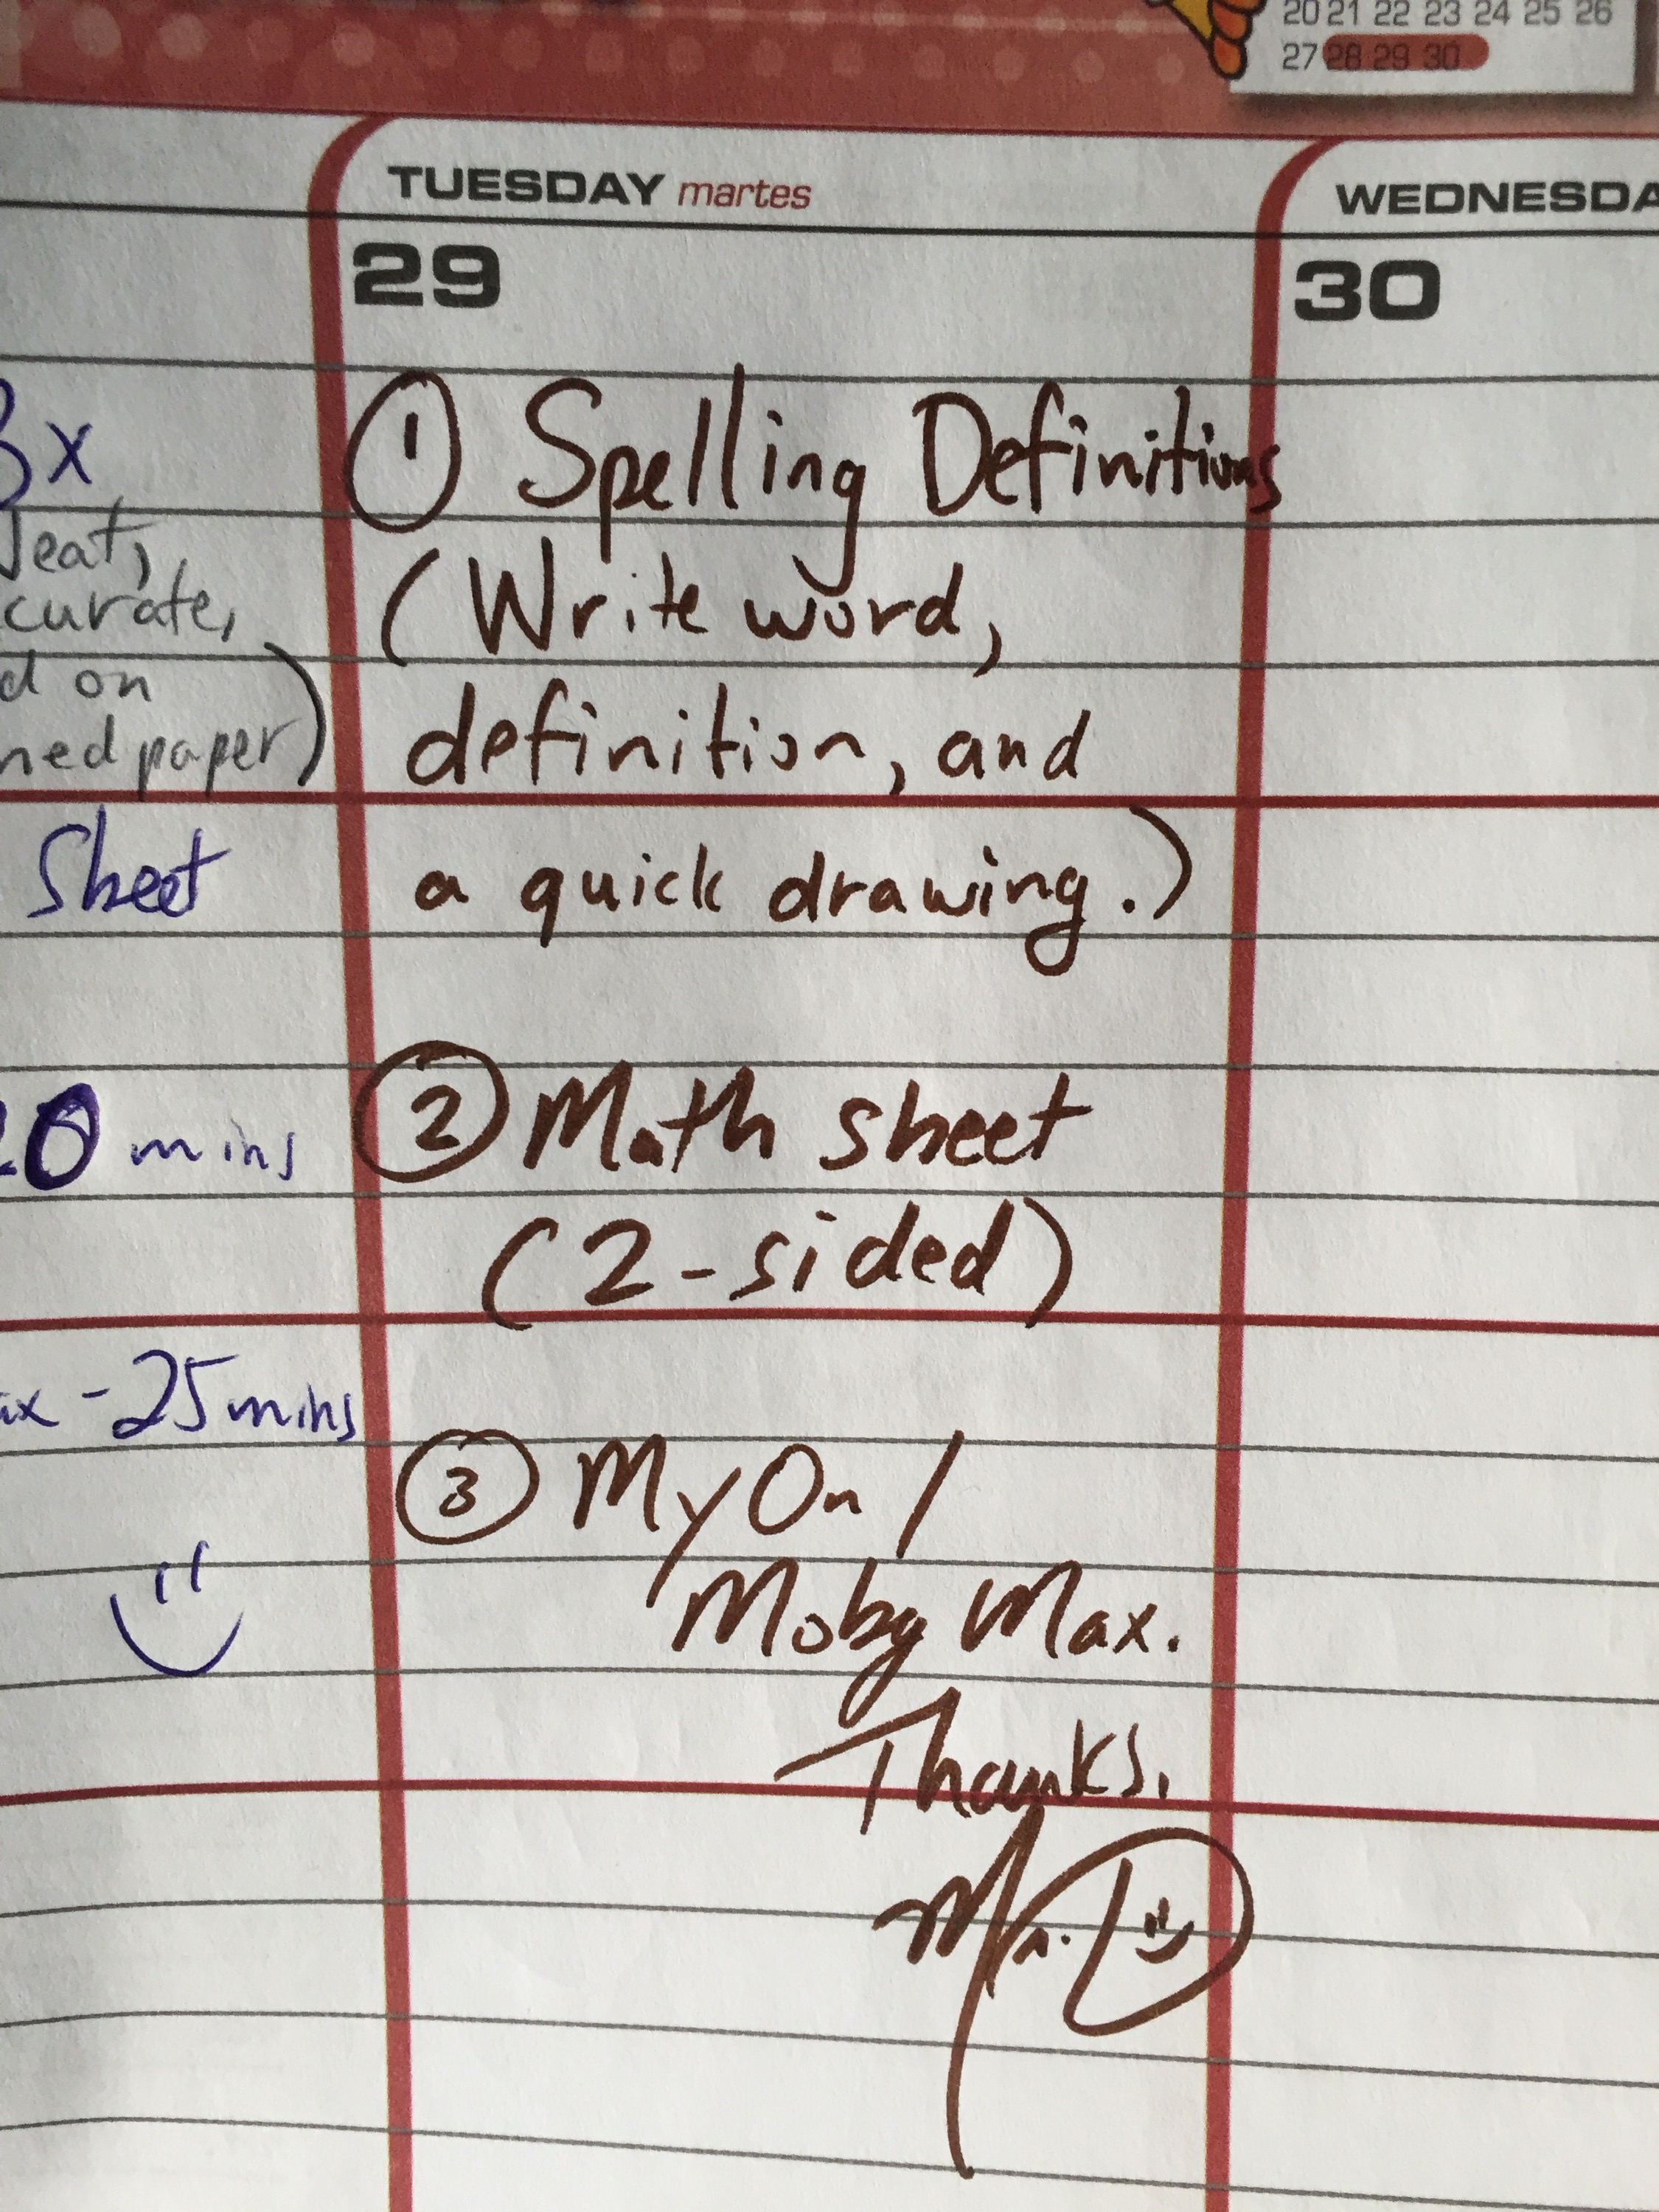 20 21 22 23 24 25 26
27 28 29 30
TUESDAY martes
29
① Spelling Definitions
(Write word,
definition, and
a quick drawing.)
② Math sheet
(2-sided)
③ MyOn /
Moby Max.
Thanks,
Mr. D
WEDNESDA
30
3x
Neat,
curate,
d on
ned paper)
Sheet
20 mins
ax - 25 mins